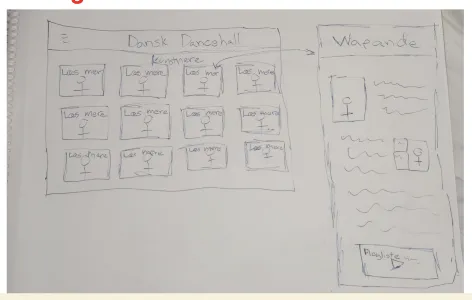 Dansk Dancehall
kunstnere
Læs mere
Læs mere
Læs mere
Læs mere
Læs mere
Læs mere
Læs mere
Læs mere
Læs mere
Læs mere
Læs mere
Læs mere
Wapande
Playliste